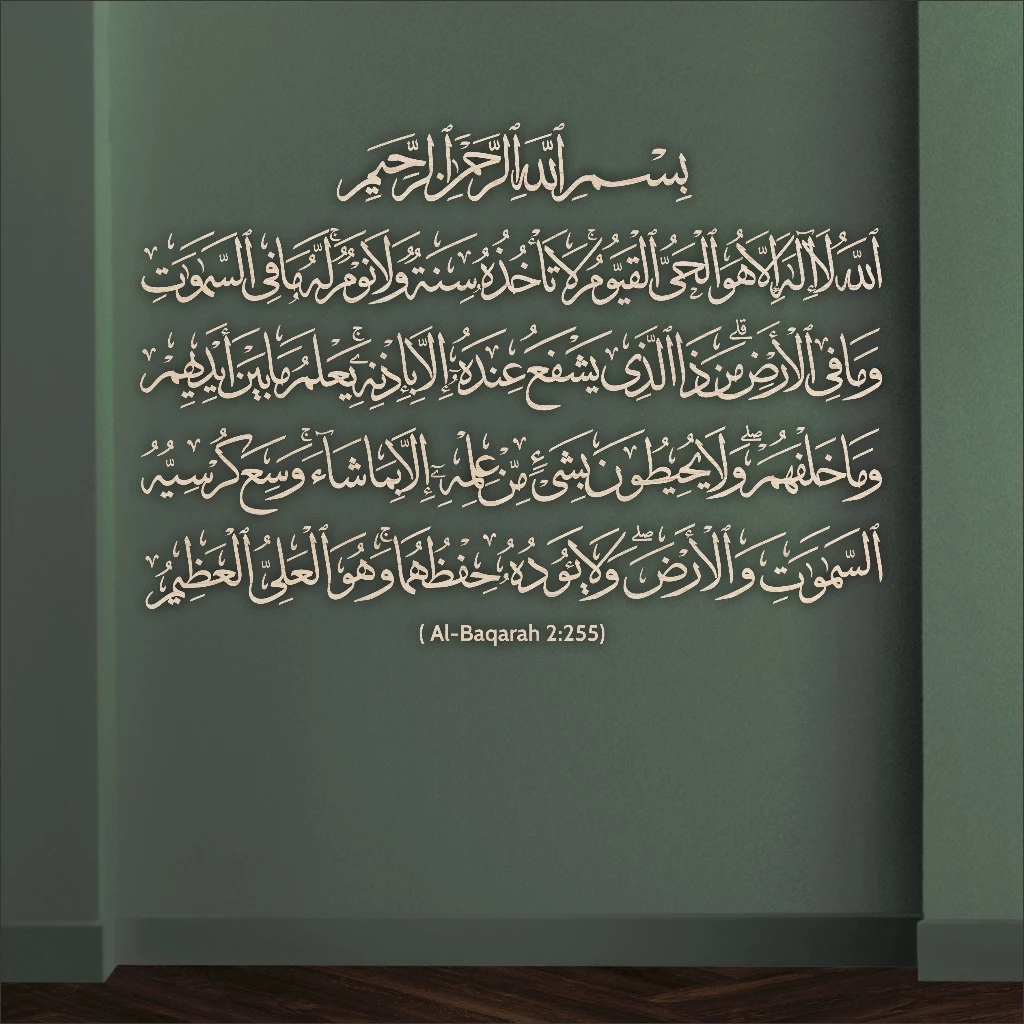 بِسْمِ ٱللَّهِ ٱلرَّحْمَٰنِ ٱلرَّحِيمِ
ٱللَّهُ لَآ إِلَٰهَ إِلَّا هُوَ ٱلْحَىُّ ٱلْقَيُّومُ ۚ لَا تَأْخُذُهُۥ سِنَةٌ وَلَا نَوْمٌ ۚ لَّهُۥ مَا فِى ٱلسَّمَٰوَٰتِ
وَمَا فِى ٱلْأَرْضِ ۗ مَن ذَا ٱلَّذِى يَشْفَعُ عِندَهُۥٓ إِلَّا بِإِذْنِهِۦ ۚ يَعْلَمُ مَا بَيْنَ أَيْدِيهِمْ
وَمَا خَلْفَهُمْ ۖ وَلَا يُحِيطُونَ بِشَىْءٍ مِّنْ عِلْمِهِۦٓ إِلَّا بِمَا شَآءَ ۚ وَسِعَ كُرْسِيُّهُ
ٱلسَّمَٰوَٰتِ وَٱلْأَرْضَ ۖ وَلَا يَـُٔودُهُۥ حِفْظُهُمَا ۚ وَهُوَ ٱلْعَلِىُّ ٱلْعَظِيمُ
( Al-Baqarah 2:255)